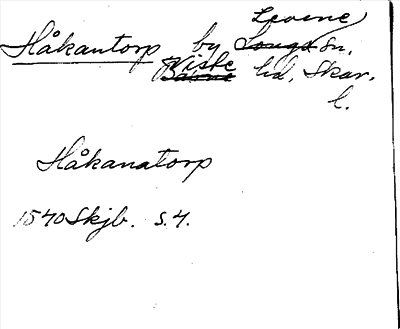 Håkantorp by Levene sn,
Viste hd, Skar.
l.
Håkanatorp
1540 Skjb. s. 7.